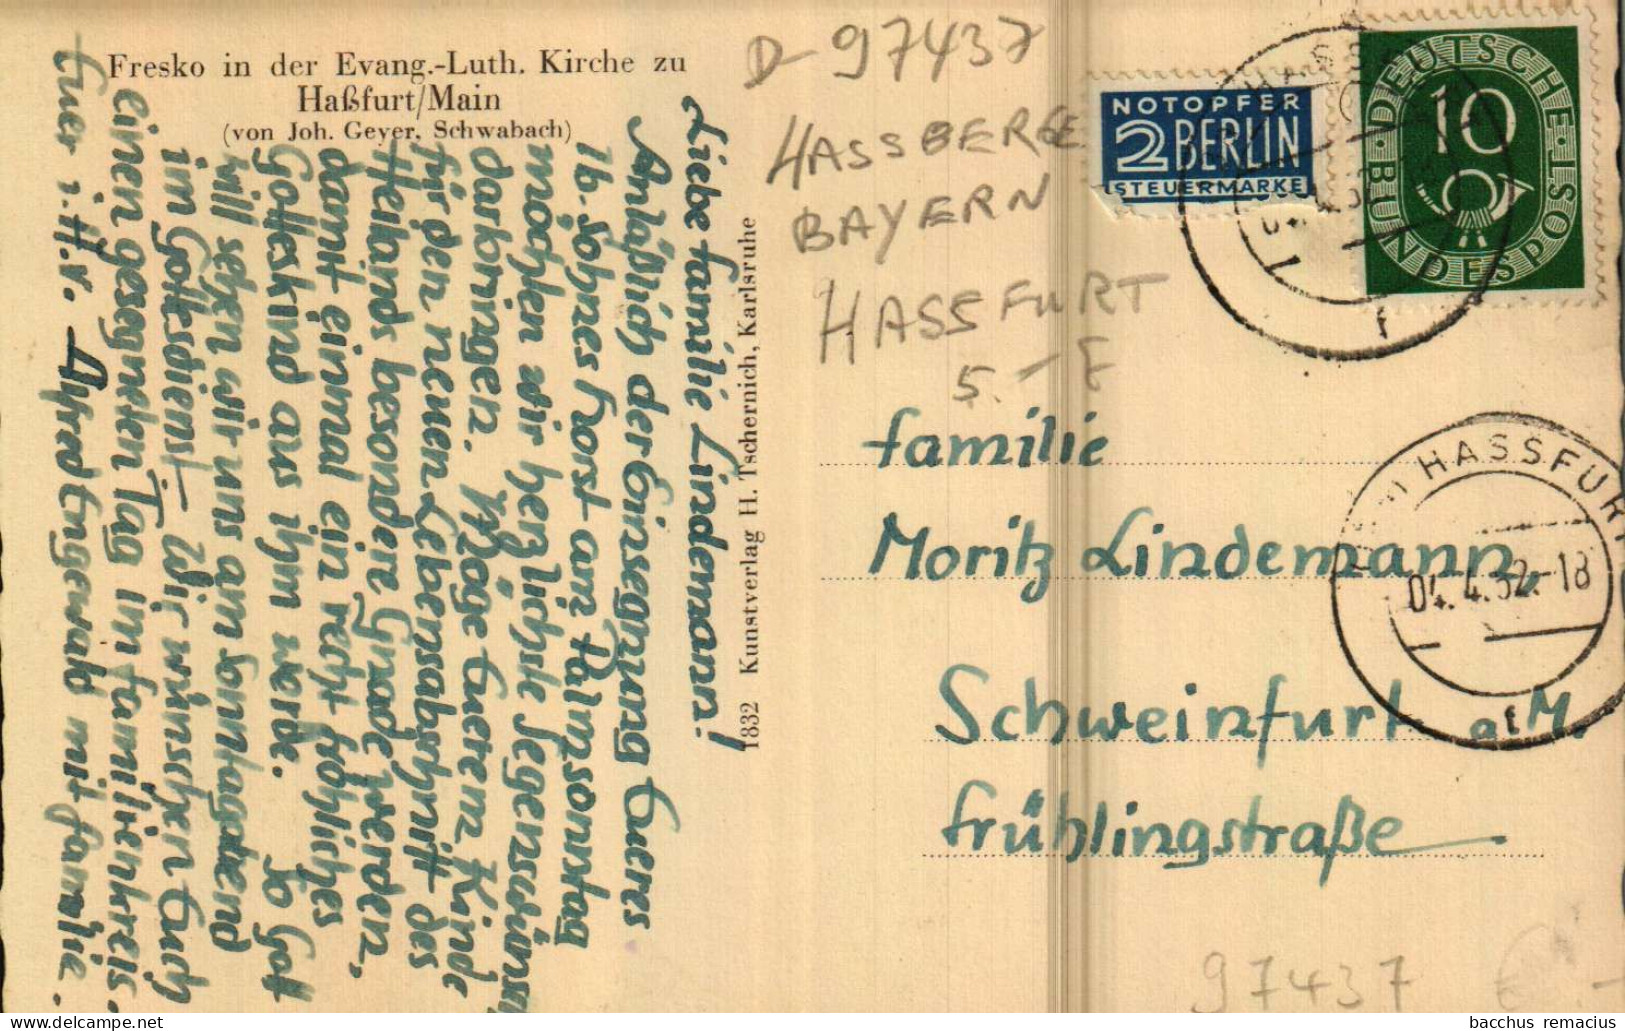 Fresko in der Evang.-Luth. Kirche zu
Haßfurt/Main
(von Joh. Geyer, Schwabach)
Liebe Familie Lindemann!
Anläßlich der Einsegnung Eueres
lb. Sohnes Horst am Palmsonntag
möchten wir herzlichste Segenswünsche
darbringen. Möge Euerem Kinde
für den neuen Lebensabschnitt des
Heilands besondere Gnade werden,
damit einmal ein recht fröhliches
Gotteskind aus ihm werde. So Gott
will sehen wir uns am Sonntagabend
im Gottesdienst – Wir wünschen Euch
einen gesegneten Tag im Familienkreis.
Euer i. H. v. Alfred Engerwald mit Familie.
1832 Kunstverlag H. Tschernich, Karlsruhe
D-97437
HASSBERGE
BAYERN
HASSFURT
5.-E
NOTOPFER
2 BERLIN
STEUERMARKE
DEUTSCHE POST
10
BUNDESPOST
HASSFURT
04.4.52.-18
f
Familie
Moritz Lindemann,
Schweinfurt a M.
Frühlingstraße
97437
bacchus remacius